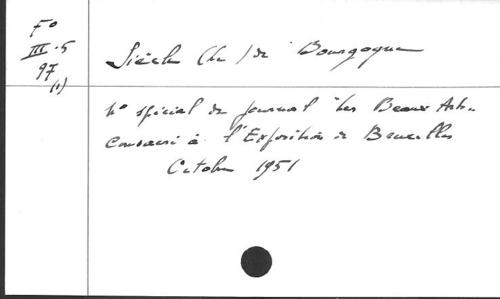 F°
III.5
97
(1)
Siècle (Le) de Bourgogne
N° spécial du journal "Les Beaux Arts"
consacré à l'Exposition de Bruxelles
Octobre 1951